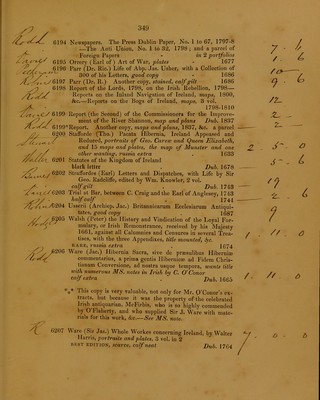 349
Rodd 6194 Newspapers. The Press Dublin Paper, No. 1 to 67, 1797-8
—The Anti Union, No. 1 to 32, 1798; and a parcel of
Foreign Papers - in 2 portfolios
6195 Orrery (Earl of) Art of War, plates - 1677
6196 Parr (Dr. Ric.) Life of Abp. Jas. Usher, with a Collection of
300 of his Letters, good copy - 1686
6197 Parr (Dr. R.) Another copy, stained, calf gilt 1686
6198 Report of the Lords, 1798, on the Irish Rebellion, 1798—
Reports on the Inland Navigation of Ireland, maps, 1800,
&c.—Reports on the Bogs of Ireland, maps, 3 vol.
1798-1810
6199 Report (the Second) of the Commissioners for the Improve-
ment of the River Shannon, map and plans Dub. 1837
6199* Report. Another copy, maps and plans, 1837, &c. a parcel
6200 Stafforde (Tho.) Pacata Hibernia, Ireland Appeased and
Reduced, portraits of Geo. Carew and Queen Elizabeth,
and 15 maps and plates, the map of Munster and one
other wanting, russia extra 1633
Waller 6201 Statutes of the Kingdom of Ireland
black letter Dub. 1678
6202 Straffordes (Earl) Letters and Dispatches, with Life by Sir
Geo. Radcliffe, edited by Wm. Knowler, 2 vol.
calf gilt Dub. 1743
6203 Trial at Bar, between C. Craig and the Earl of Anglesey, 1743
half calf 1744
6204 Usserii (Archiep. Jac.) Britannicarum Ecclesiarum Antiqui-
tates, good copy 1687
6205 Walsh (Peter) the History and Vindication of the Loyal For-
mulary, or Irish Remonstrance, received by his Majesty
1661, against all Calumnies and Censures in several Trea-
tises, with the three Appendixes, title mounted, &c.
RARE, russia extra 1674
Rodd 6206 Ware (Jac.) Hibernia Sacra, sive de præsulibus Hiberniæ
commentarius, a prima gentis Hibernicæ ad Fidem Chris-
tianum Conversione, ad nostra usque tempora, wants title
with numerous MS. notes in Irish by C. O'Conor
calf extra Dub. 1665
*** This copy is very valuable, not only for Mr. O'Conor's ex-
tracts, but because it was the property of the celebrated
Irish antiquarian, McFirbis, who is so highly commended
by O'Flaherty, and who supplied Sir J. Ware with mate-
rials for this work, &c.—See MS. note.
R 6207 Ware (Sir Jas.) Whole Workes concerning Ireland, by Walter
Harris, portraits and plates, 3 vol. in 2
BEST EDITION, scarce, calf neat Dub. 1764